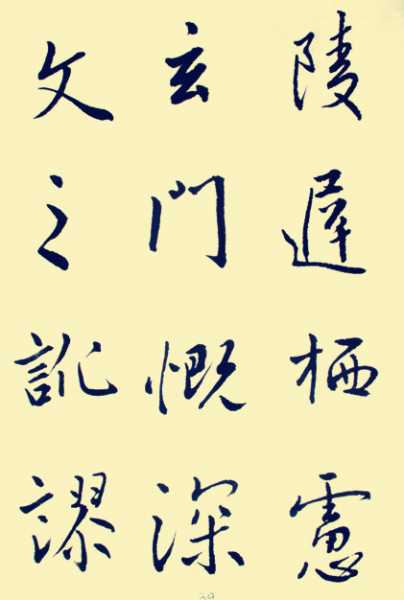 陵遲栖慮
玄門慨深
文之訛謬